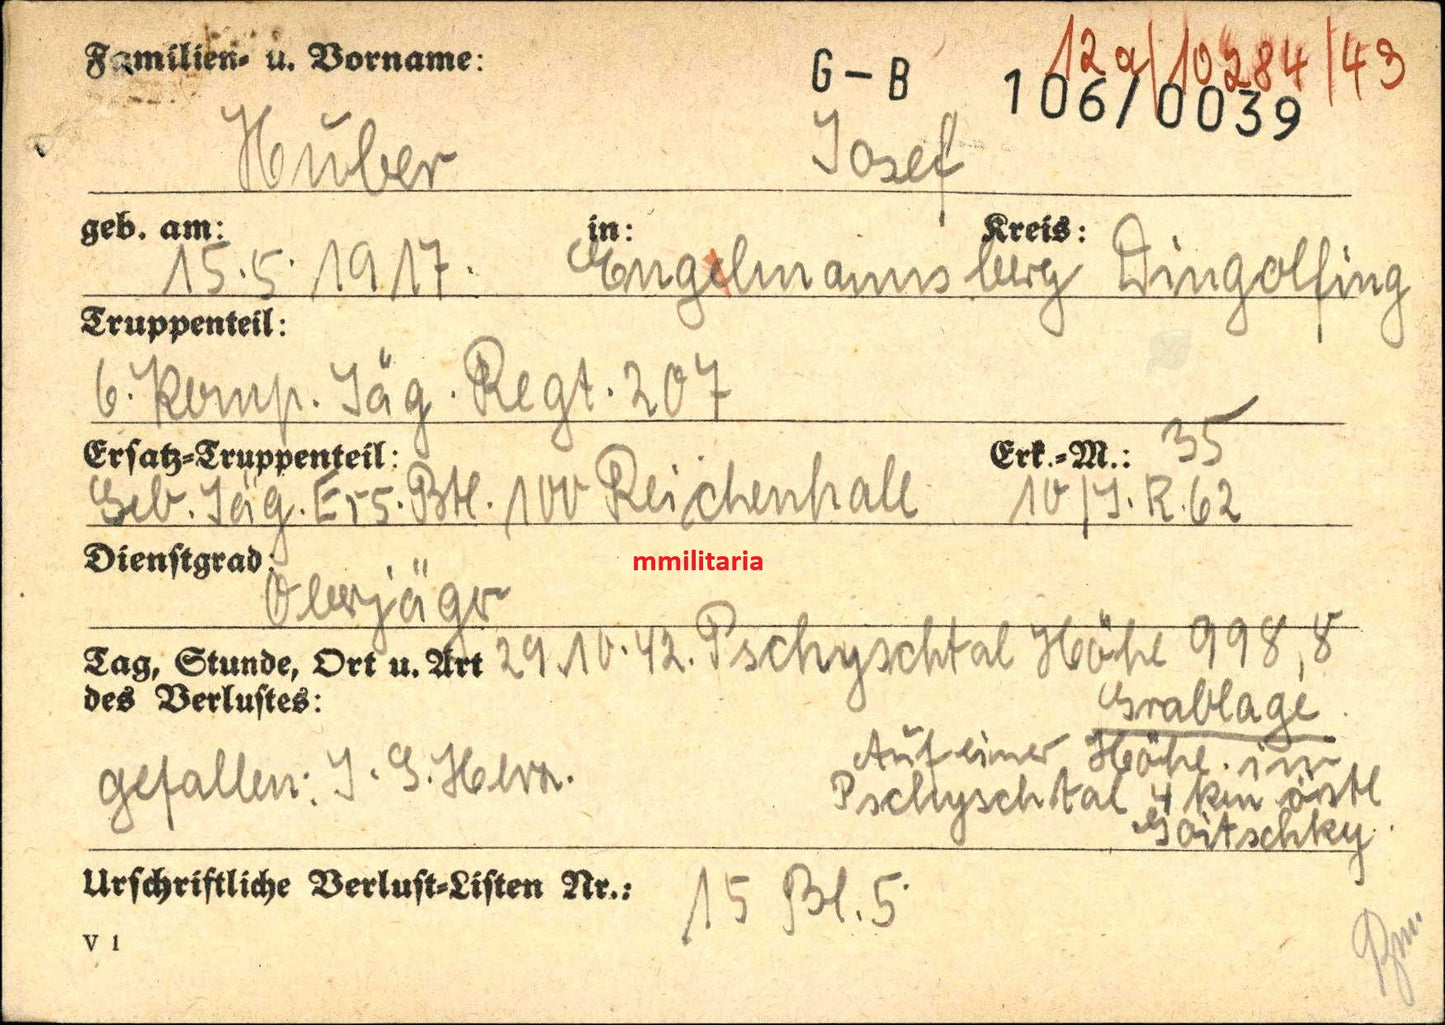 Familien- u. Vorname:
G-B
12a/10284/43
106/0039
Huber Josef
geb. am: in: Kreis:
15.5.1917. Engelmannsberg Dingolfing
Truppenteil:
6. Komp. Jäg. Regt. 207
Ersatz-Truppenteil: Erk.-M.: 35
Geb. Jäg. Ers. Btl. 100 Reichenhall 10/J.R.62
Dienstgrad: mmilitaria
Oberjäger
Tag, Stunde, Ort u. Art 29.10.42. Pschyschtal Höhe 998,8
des Verlustes:
Grablage
Auf einer Höhe im
gefallen: J.G. Pschyschtal 4 km östl
Goitschky.
Urschriftliche Verlust-Listen Nr.: 15 Bl. 5
V 1